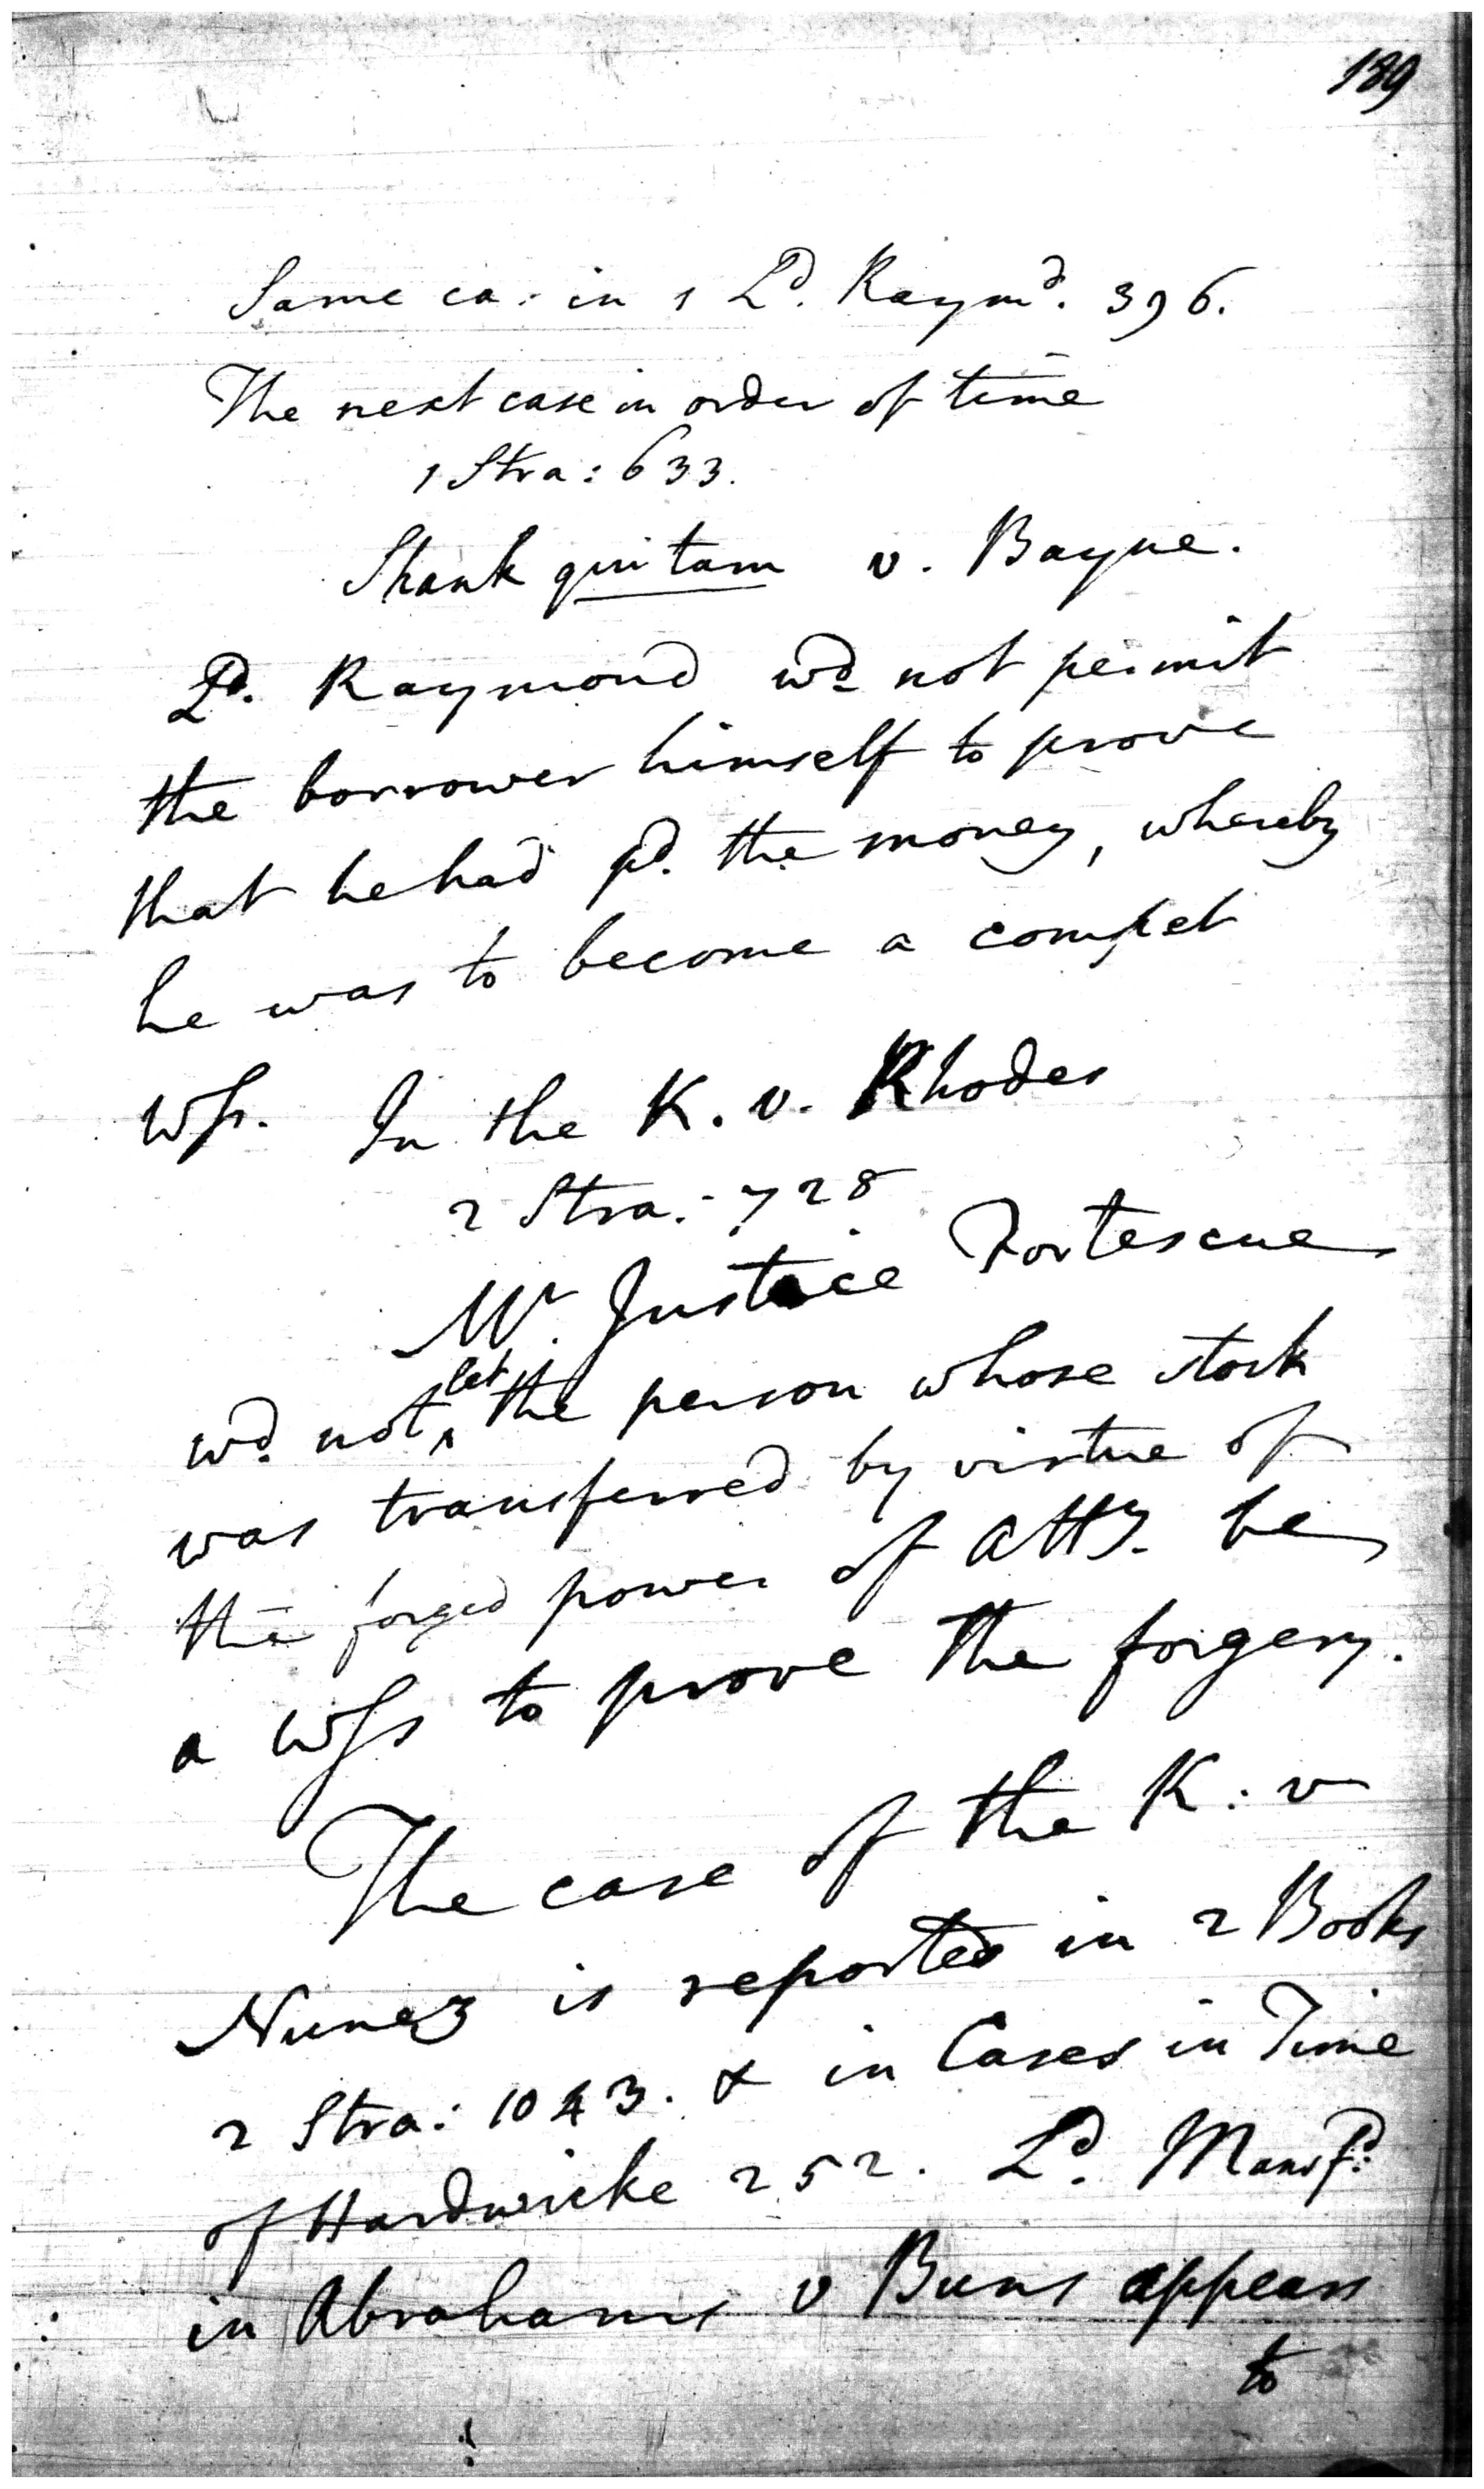 189
Same ca: in 1 Ld. Raymd. 396.
The next case in order of time
1 Stra: 633.
Shank qui tam v. Bayne.
Ld. Raymond wd not permit
the borrower himself to prove
that he had pd. the money, whereby
he was to become a compet
Wss. In the K. v. Rhodes
2 Stra: 728
Mr. Justice Fortescue
wd. not let the person whose stock
was transferred by virtue of
the forged power of Atty. be
a Wss to prove the forgery.
The case of the K: v
Nunez is reported in 2 Books
2 Stra: 1043. & in Cases in Time
of Hardwicke 252. Ld. Mansfd:
in Abrahams v Buns appears
to